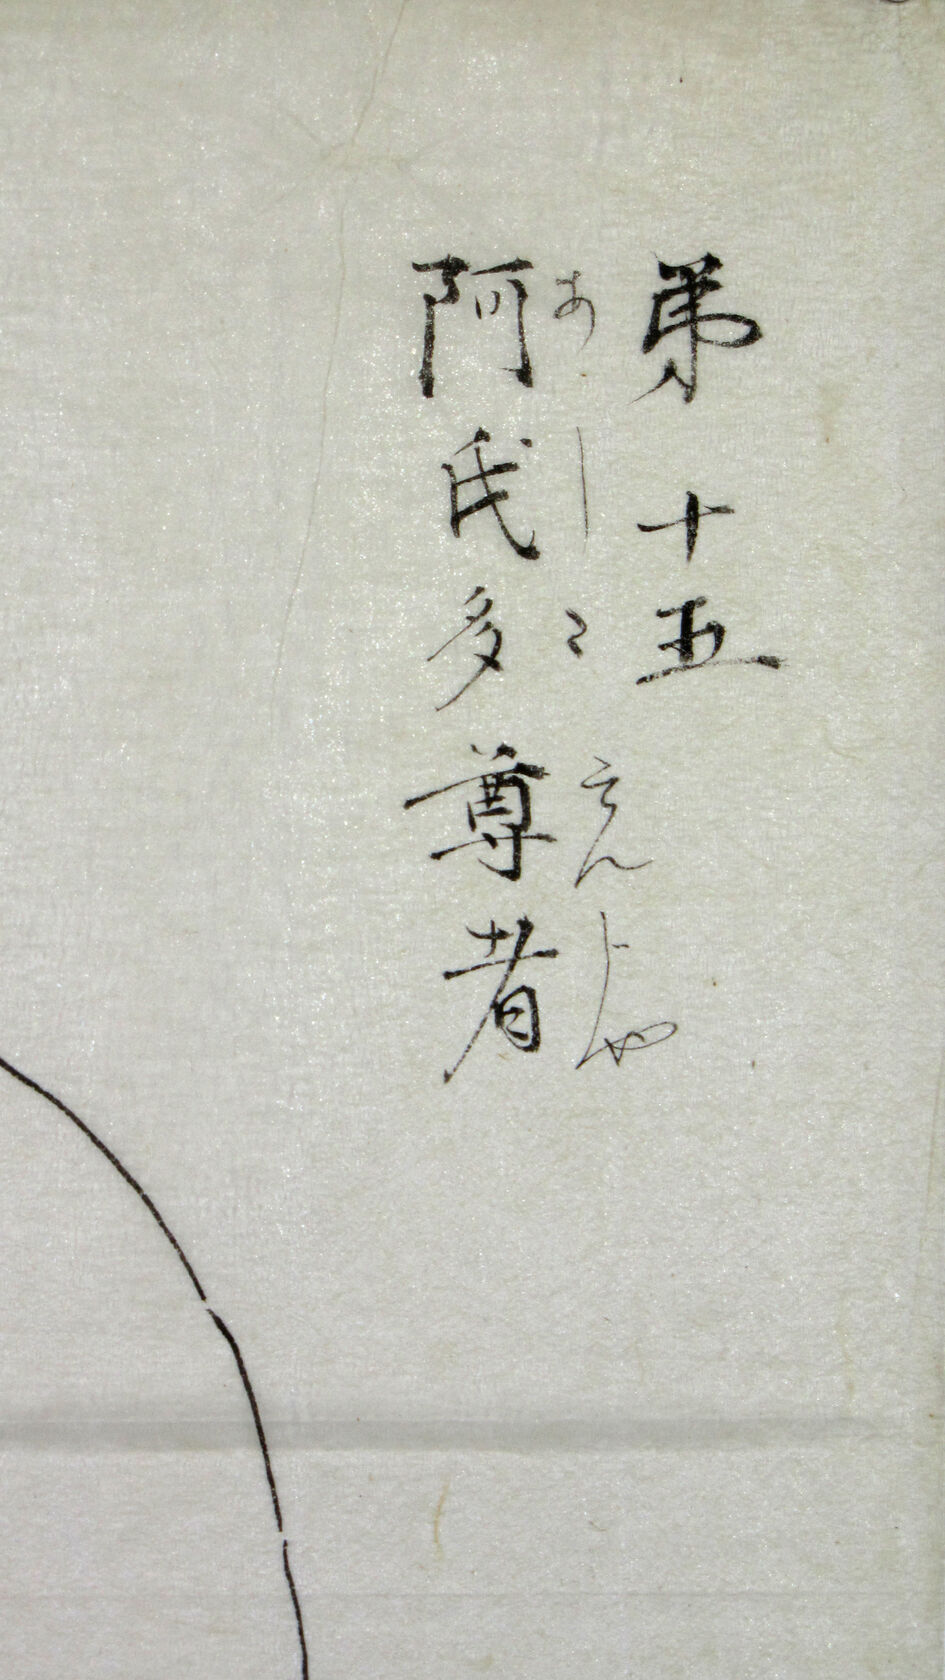 弟十五
阿氏多尊者
あしたそんじや